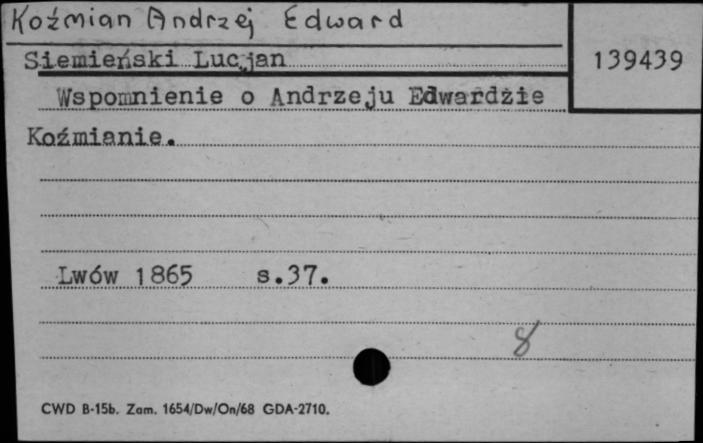 Koźmian Andrzej Edward
Siemieński Lucjan
139439
Wspomnienie o Andrzeju Edwardzie
Koźmianie.
Lwów 1865 s.37.
8
CWD B-15b. Zam. 1654/Dw/On/68 GDA-2710.